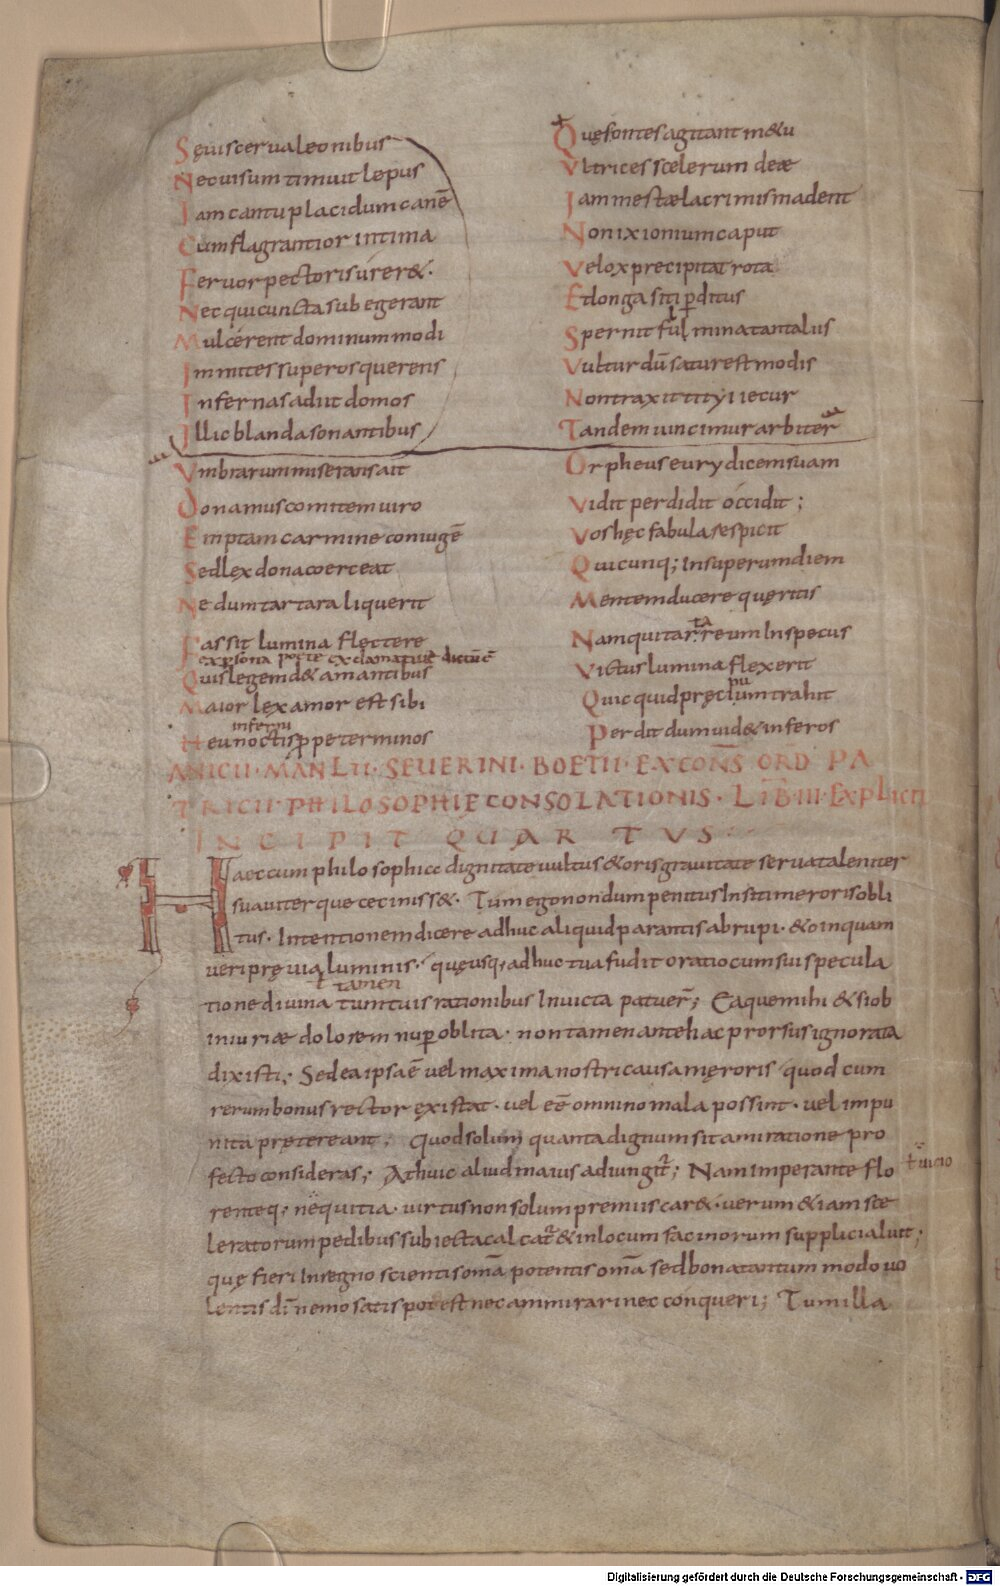 Sęuis cerua leonibus
Nec uisum timuit lepus
Iam cantu placidum canē
Cum flagrantior intima
Feruor pectoris urer&.
Nec qui cuncta subegerant
Mulcerent dominum modi
Immites superos querens
Infernas adiit domos
Illic blanda sonantibus
Vmbrarum miserans ait
Donamus comitem uiro
Emptam carmine coniugē
Sed lex dona coerceat
Ne dum tartara liquerit
Fas sit lumina flectere
Quis legem d& amantibus
Maior lex amor est sibi
inferni
Heu noctis ꝓpe terminos
Quę sontes agitant m&u
Vltrices scelerum deæ
Iam mestæ lacrimis madent
Non ixionium caput
Velox precipitat rota
Et longa siti ꝑditus
Spernit flumina tantalus
Vultur dū satur est modis
Non traxit tityi iecur
Tandem uincimur arbiter
Orpheus eurydicem suam
Vidit perdidit occidit;
Vos hęc fabula respicit
Quicunq; In superum diem
Mentem ducere quęritis
ta
Nam qui tarreum In specus
Victus lumina flexerit
Quicquid pręcipuum trahit
Perdit dum uid& inferos
ANICII · MANLII · SEUERINI · BOETII · EXCONS̄ ORD̄ PA
TRICII · PHILOSOPHIE CONSOLATIONIS · LIB̄ III · EXPLICIT
INCIPIT QUARTUS
Haec cum philosophice dignitate uultus & oris grauitate seruata leniter
suauiterque ceciniss&. Tum ego nondum penitus Insiti meroris obli
tus. Intentionem dicere adhuc aliquid parantis abrupi. & o inquam
ueri pręuia luminis. quę usq; adhuc tua fudit oratio cum sui specula
ł tamen
tione diuina tum tuis rationibus Inuicta patuer̄; Eaque mihi & si ob
iniuriæ dolorem nuꝑ oblita. non tamen antehac prorsus ignorata
dixisti; Sed ea ipsa ē uel maxima nostri causa męroris quod cum
rerum bonus rector ęxistat. uel eē omnino mala possint. uel impu
nita prętereant; Quod solum quanta dignum sit amiratione pro
fecto consideras; At huic aliud maius adiungit̄; Nam imperante flo
ł uicio
renteq; nequitia uirtus non solum premiis car&. uerum & iam sce
leratorum pedibus subiecta calcat̄ & in locum facinorum supplicia luit;
quę fieri In regno scientis om̄a potentis om̄a sed bona tantum modo uo
lentis dī nemo satis potest nec ammirari nec conqueri; Tum illa
Digitalisierung gefördert durch die Deutsche Forschungsgemeinschaft · DFG